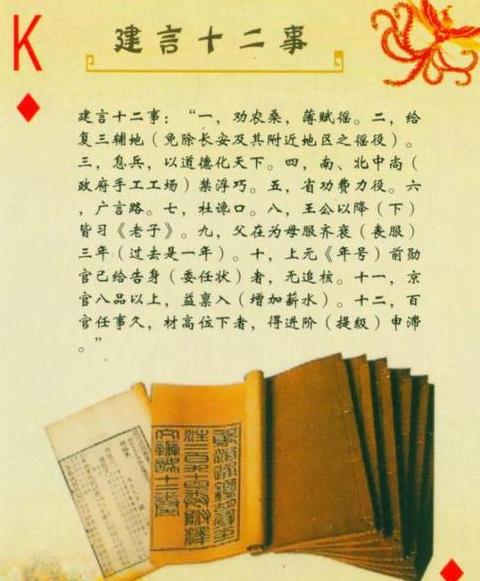 K
建言十二事
建言十二事：“一，劝农桑，薄赋徭。二，给
复三辅地（免除长安及其附近地区之徭役）。
三，息兵，以道德化天下。四，南、北中尚（
政府手工工场）禁浮巧。五，省功费力役。六
，广言路。七，杜谗口。八，王公以降（下）
皆习《老子》。九，父在为母服齐衰（丧服）
三年（过去是一年）。十，上元《年号）前勋
官已给告身（委任状）者，无追核。十一，京
官八品以上，益禀入（增加薪水）。十二，百
官任事久，材高位下者，得进阶（提级）申滞
。”